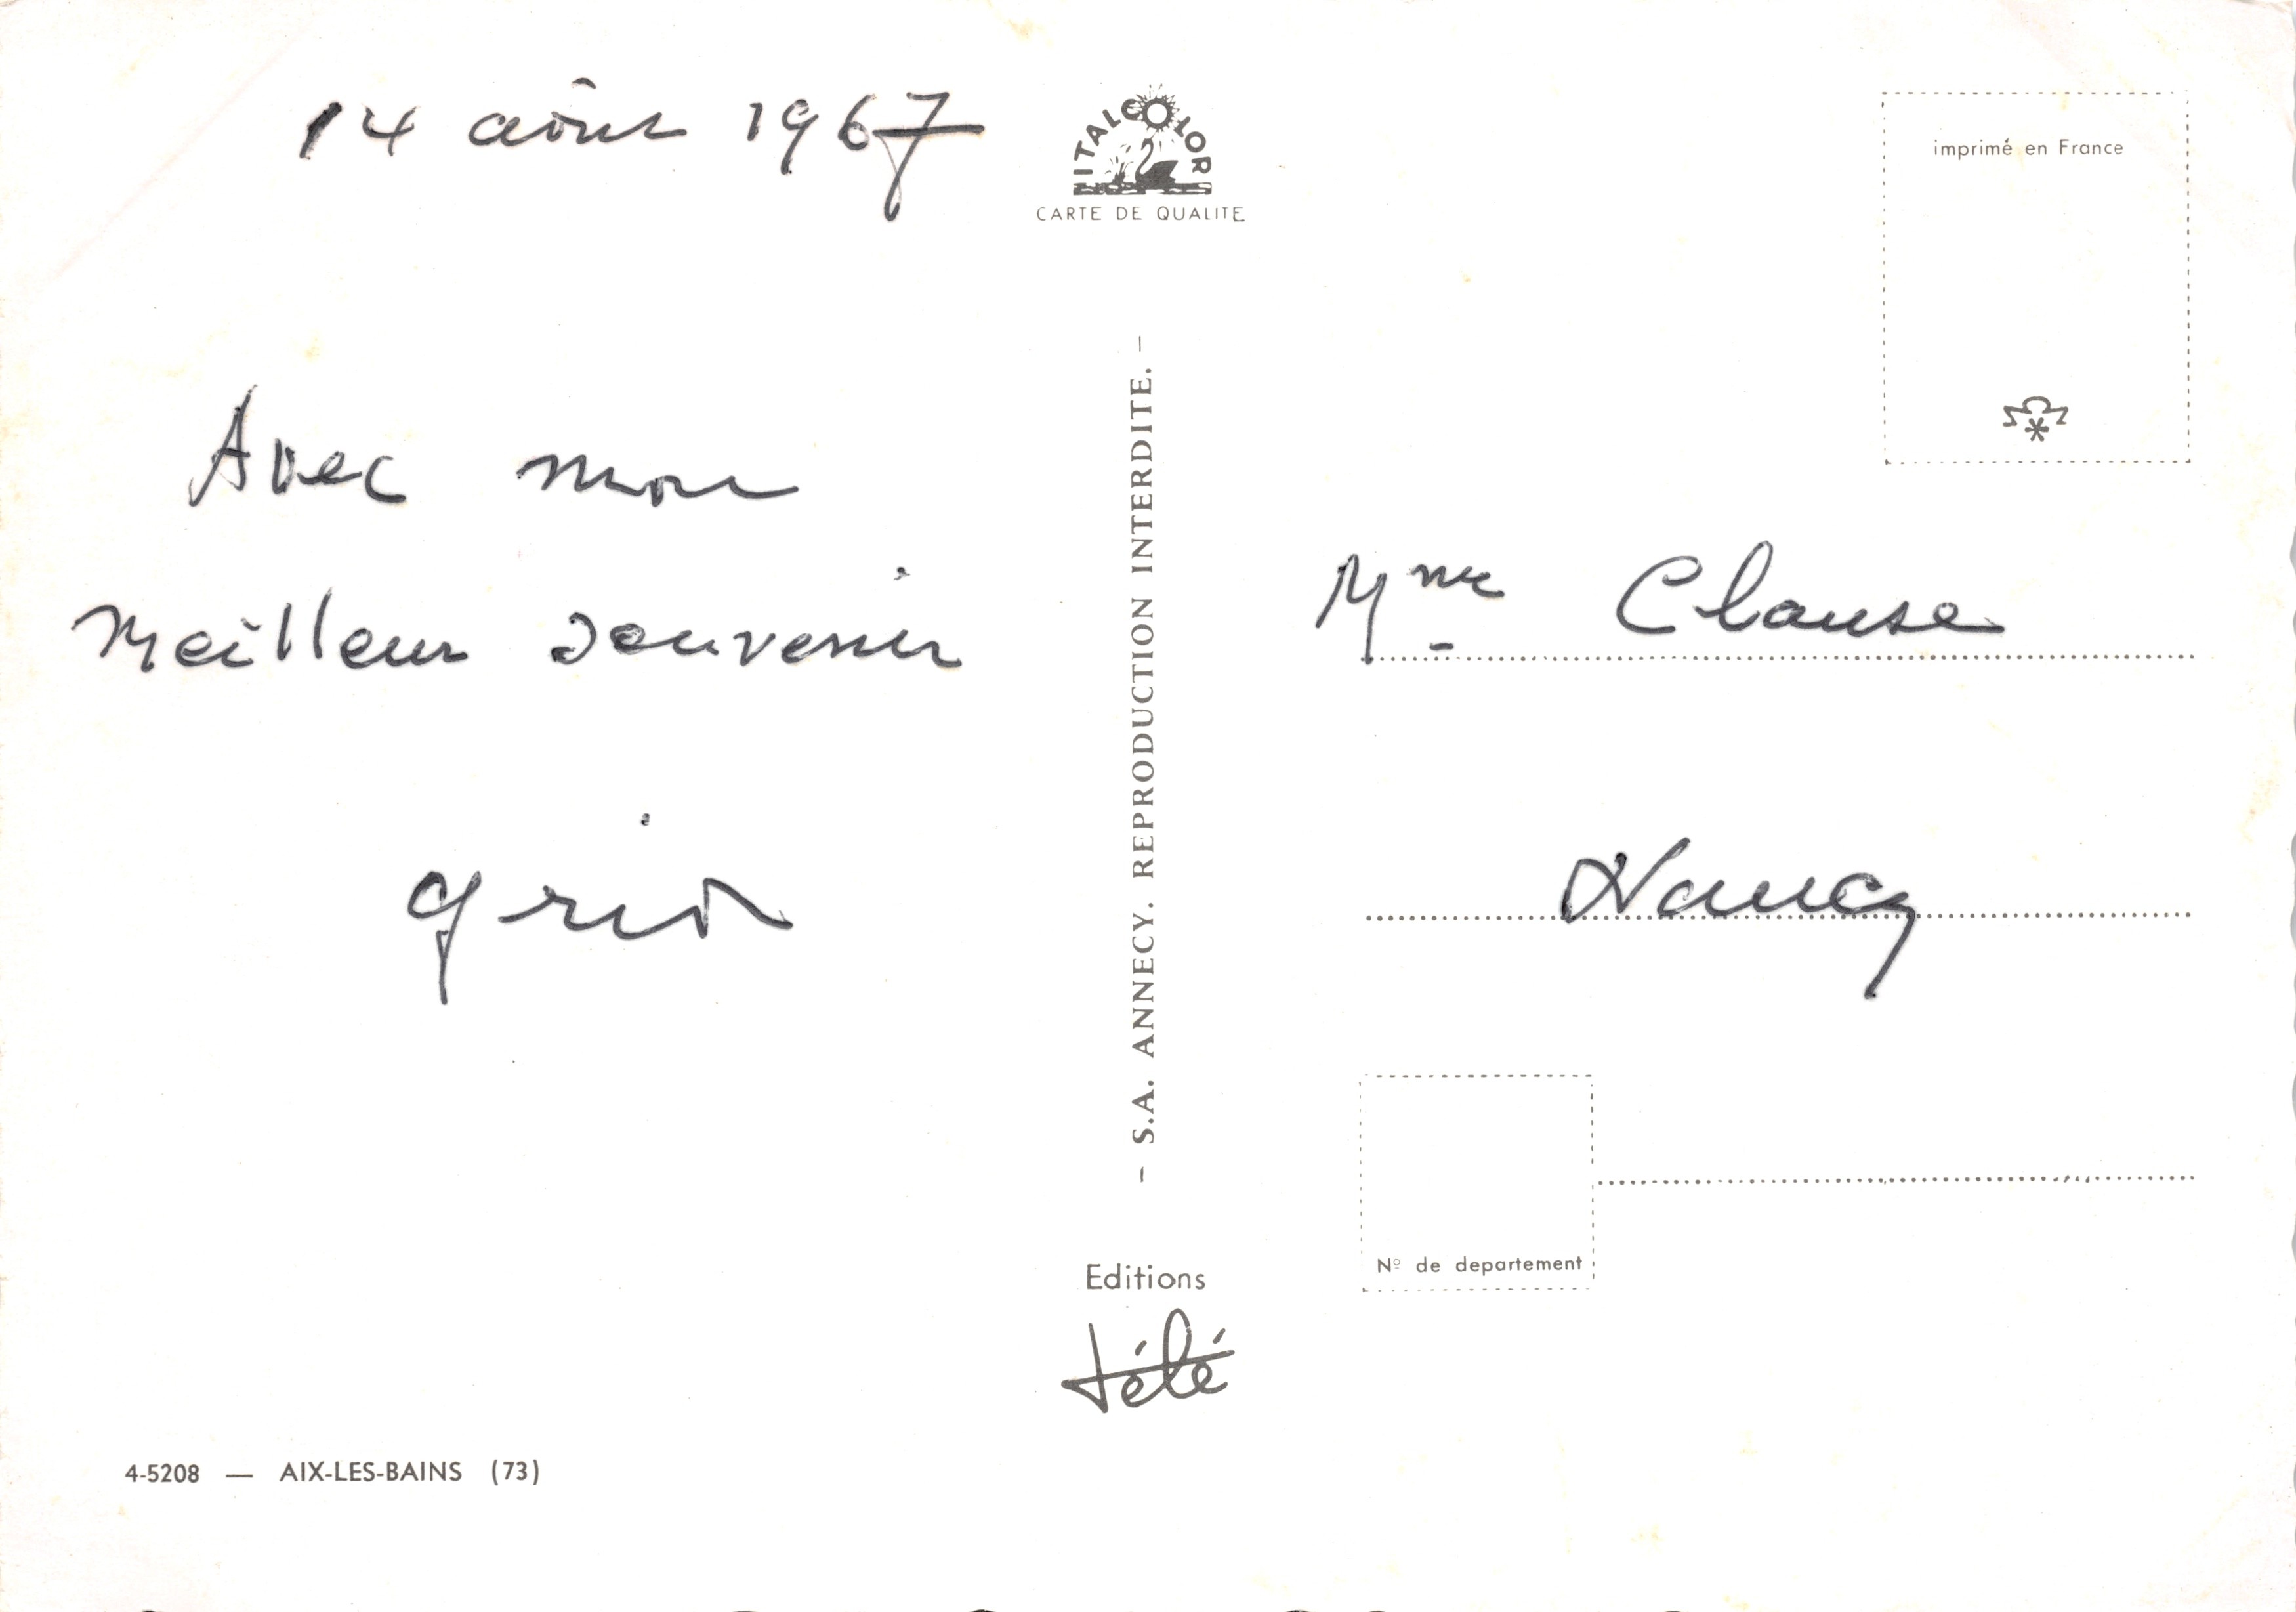 14 août 1967
Avec mon
Meilleur souvenir
ITALCOLOR
CARTE DE QUALITE
– S.A. ANNECY. REPRODUCTION INTERDITE. –
Editions
télé
imprimé en France
Mme Clause
Nancy
Nº de departement
4-5208 — AIX-LES-BAINS (73)